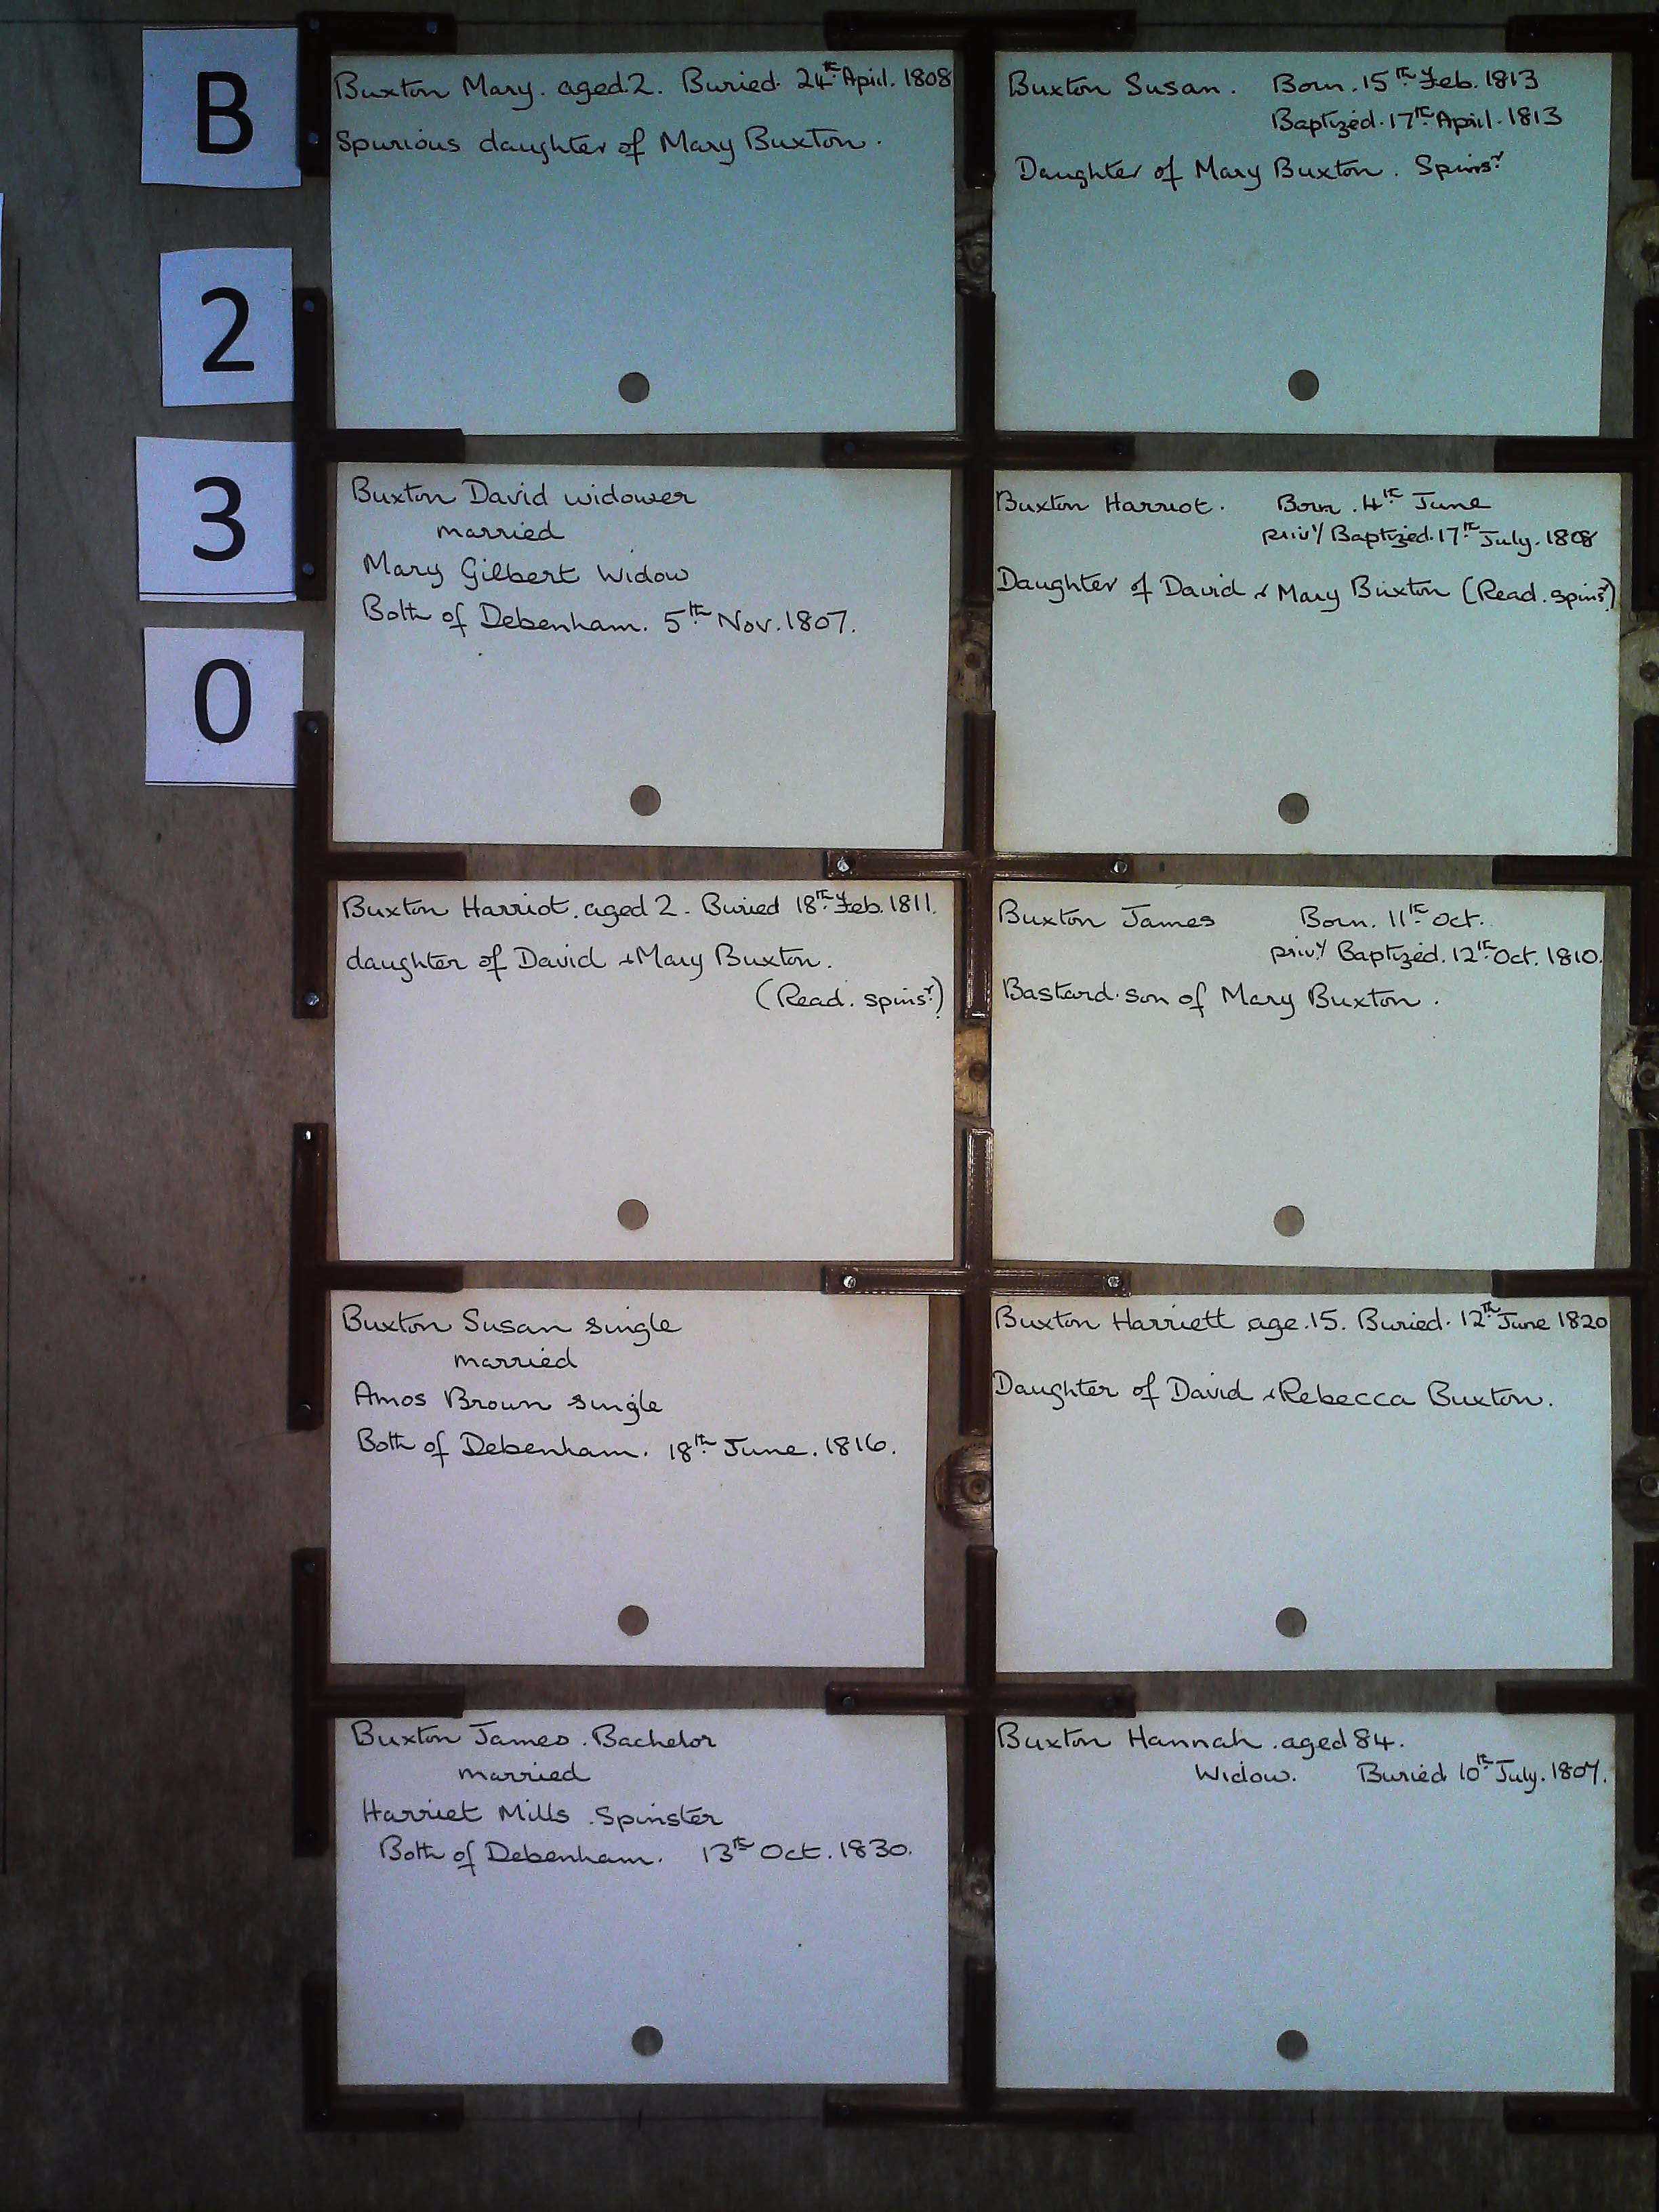 B
2
3
0
Buxton Mary. aged.2. Buried. 24th April. 1808
Spurious daughter of Mary Buxton.
Buxton Susan. Born. 15th Feb. 1813
Baptized. 17th April. 1813
Daughter of Mary Buxton. Spinsr
Buxton David widower
married
Mary Gilbert Widow
Both of Debenham. 5th Nov. 1807.
Buxton Harriot. Born. 4th June
privy Baptized. 17th July. 1808
Daughter of David & Mary Buxton (Read. spinsr)
Buxton Harriot. aged 2. Buried 18th Feb. 1811.
daughter of David & Mary Buxton.
(Read. spinsr)
Buxton James Born. 11th Oct.
privy Baptized. 12th Oct. 1810.
Bastard son of Mary Buxton.
Buxton Susan single
married
Amos Brown single
Both of Debenham. 18th June. 1816.
Buxton Harriett age.15. Buried. 12th June 1820
Daughter of David & Rebecca Buxton.
Buxton James. Bachelor
married
Harriet Mills. Spinster
Both of Debenham. 13th Oct. 1830.
Buxton Hannah. aged 84.
Widow. Buried 10th July. 1807.